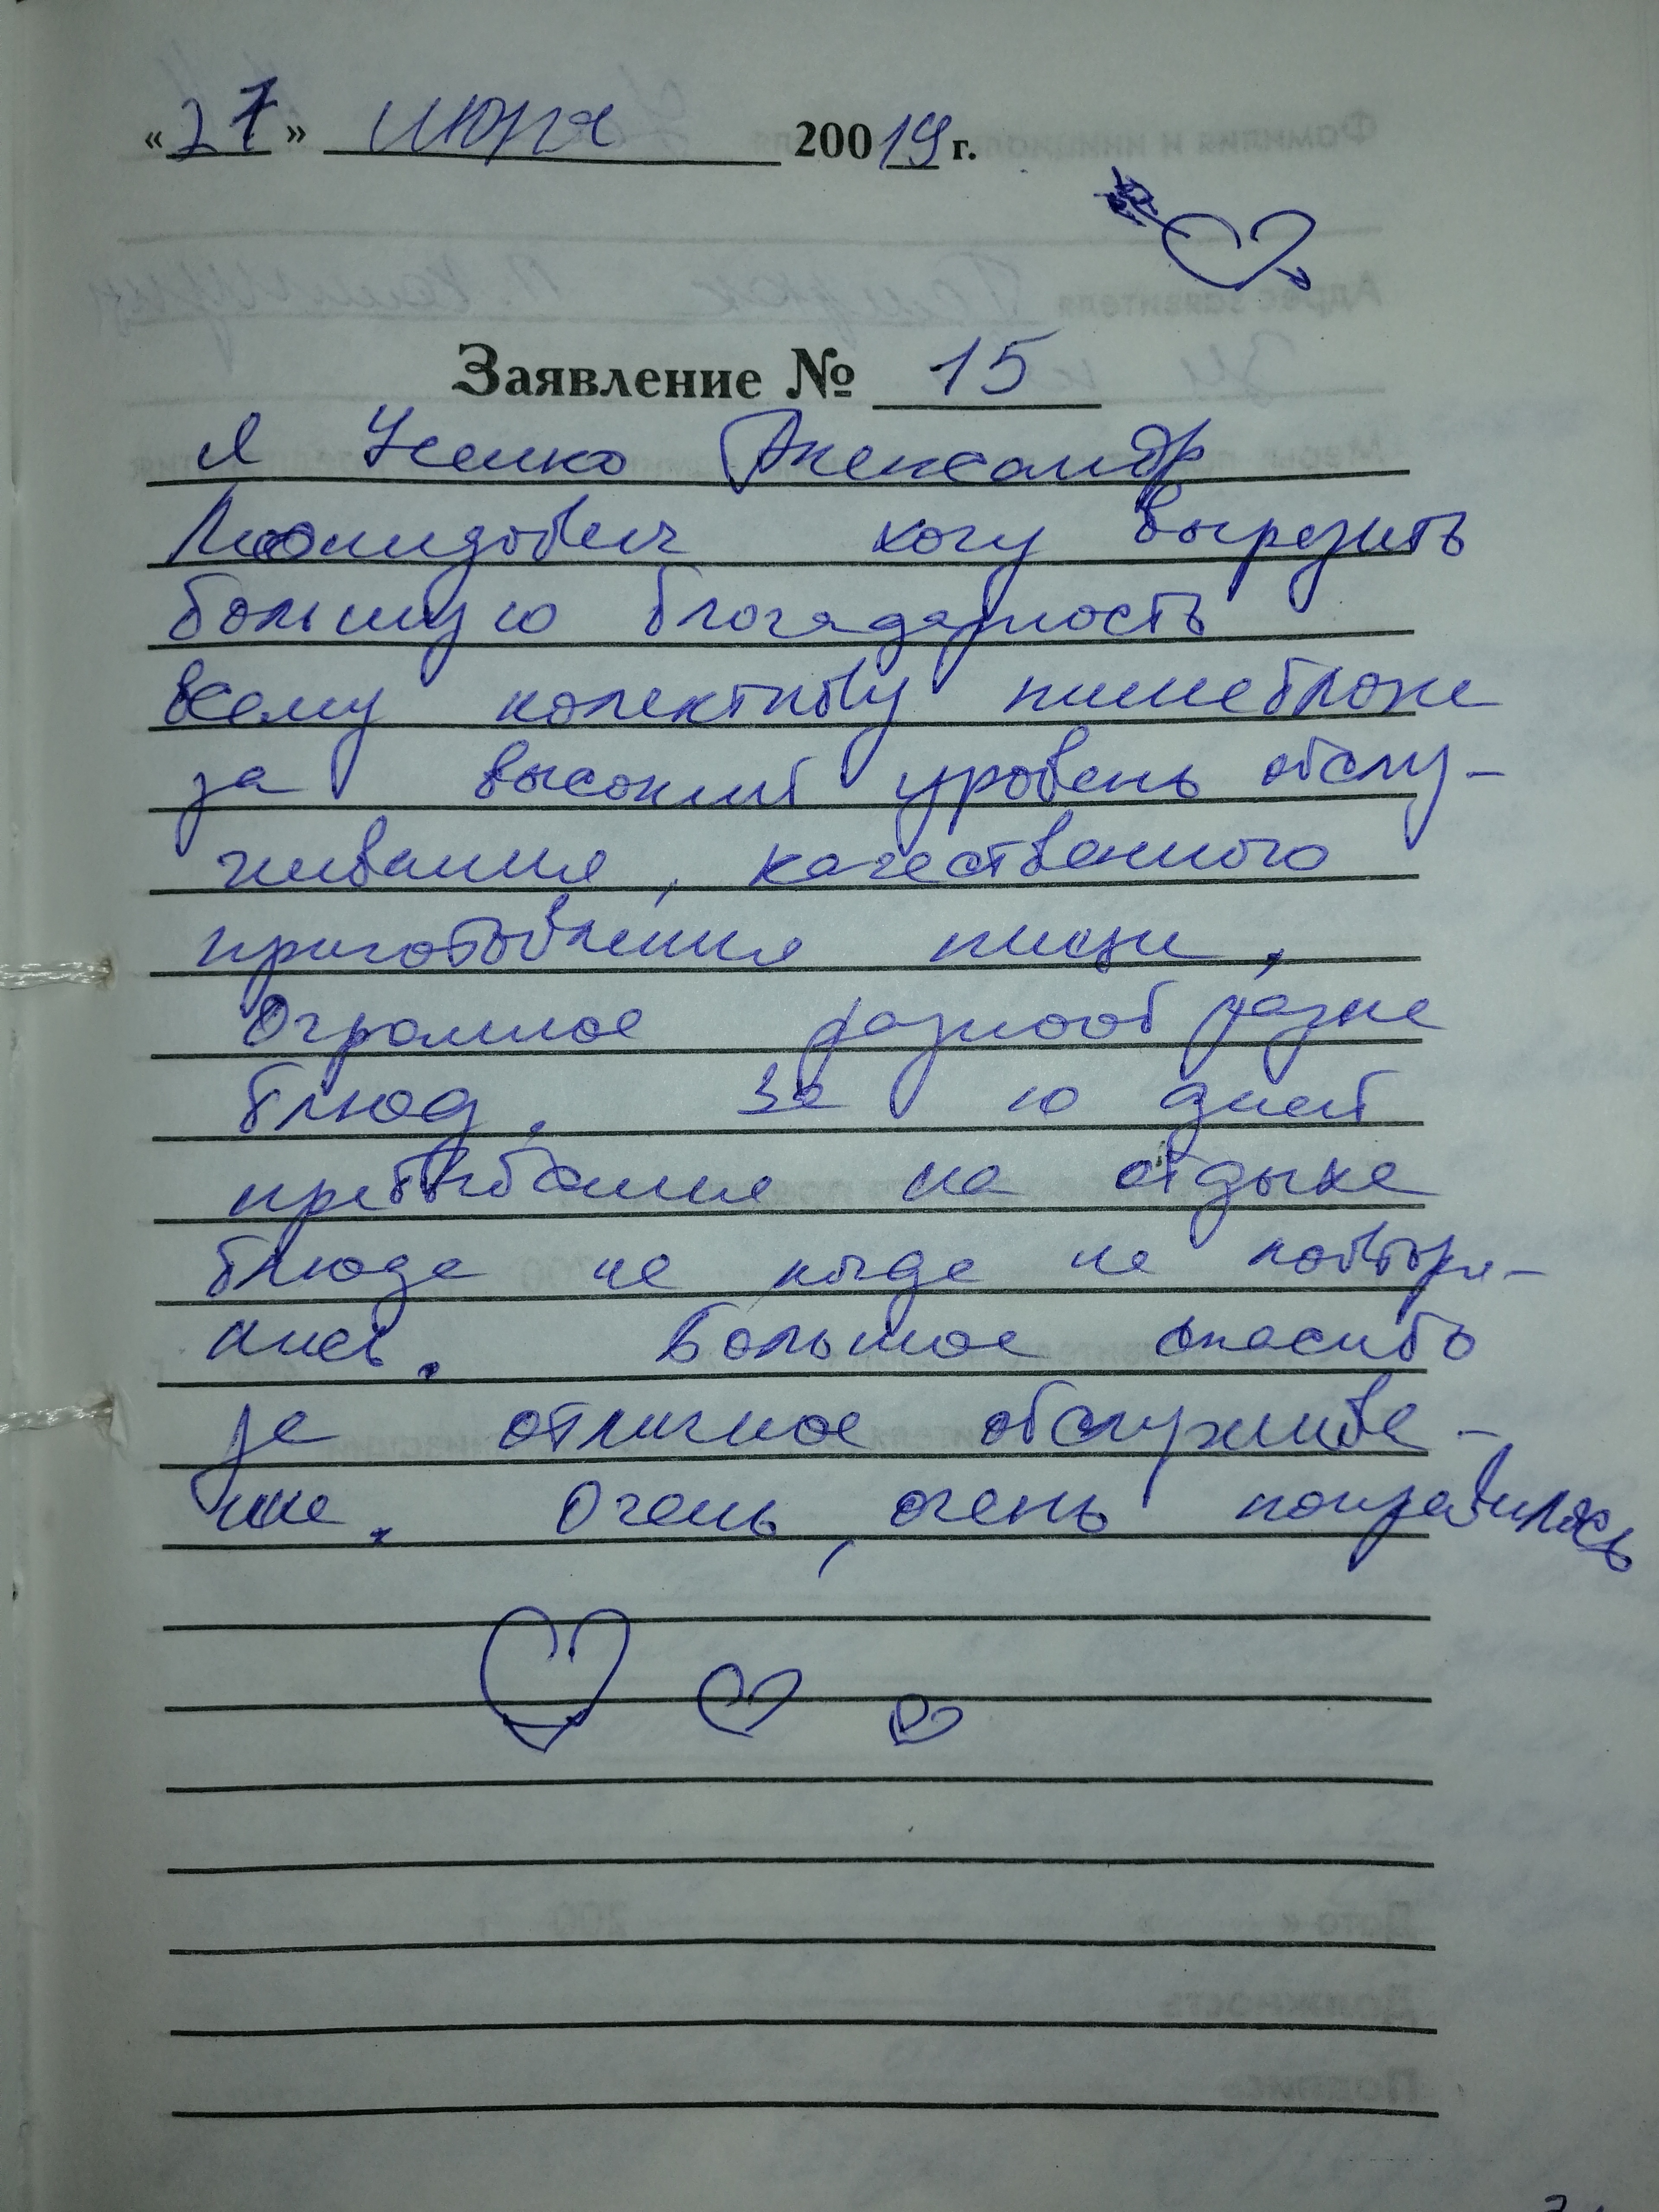 «27» июня 200 19 г.
Заявление № 15
Я Усенко Александр
Леонидович хочу вырозить
большую благадарность
всему колективу пищеблока
за высокий уровень обслу-
живания, качественного
приготовления пищи,
Огромное разнообразие
блюд. За 10 дней
пребывания на отдыхе
блюда не когда не повторя-
лись. Большое спасибо
за отличное обслужива-
ние. Очень, очень понравилось